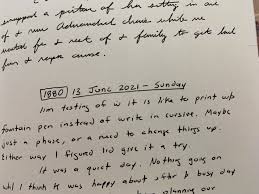 snapped a picture of her sitting in one
of new Adirondack chairs while we
waited for rest of family to get back
from
1880 13 June 2021 - Sunday
Iim testing of w it is like to print w/
fountain pen instead of write in cursive. Maybe
just a phase, or a need to change things up.
Either way I figured I'd give it a try.
It was a quiet day. Nothing going on
wh/ I think was happy about after a busy day
planning our